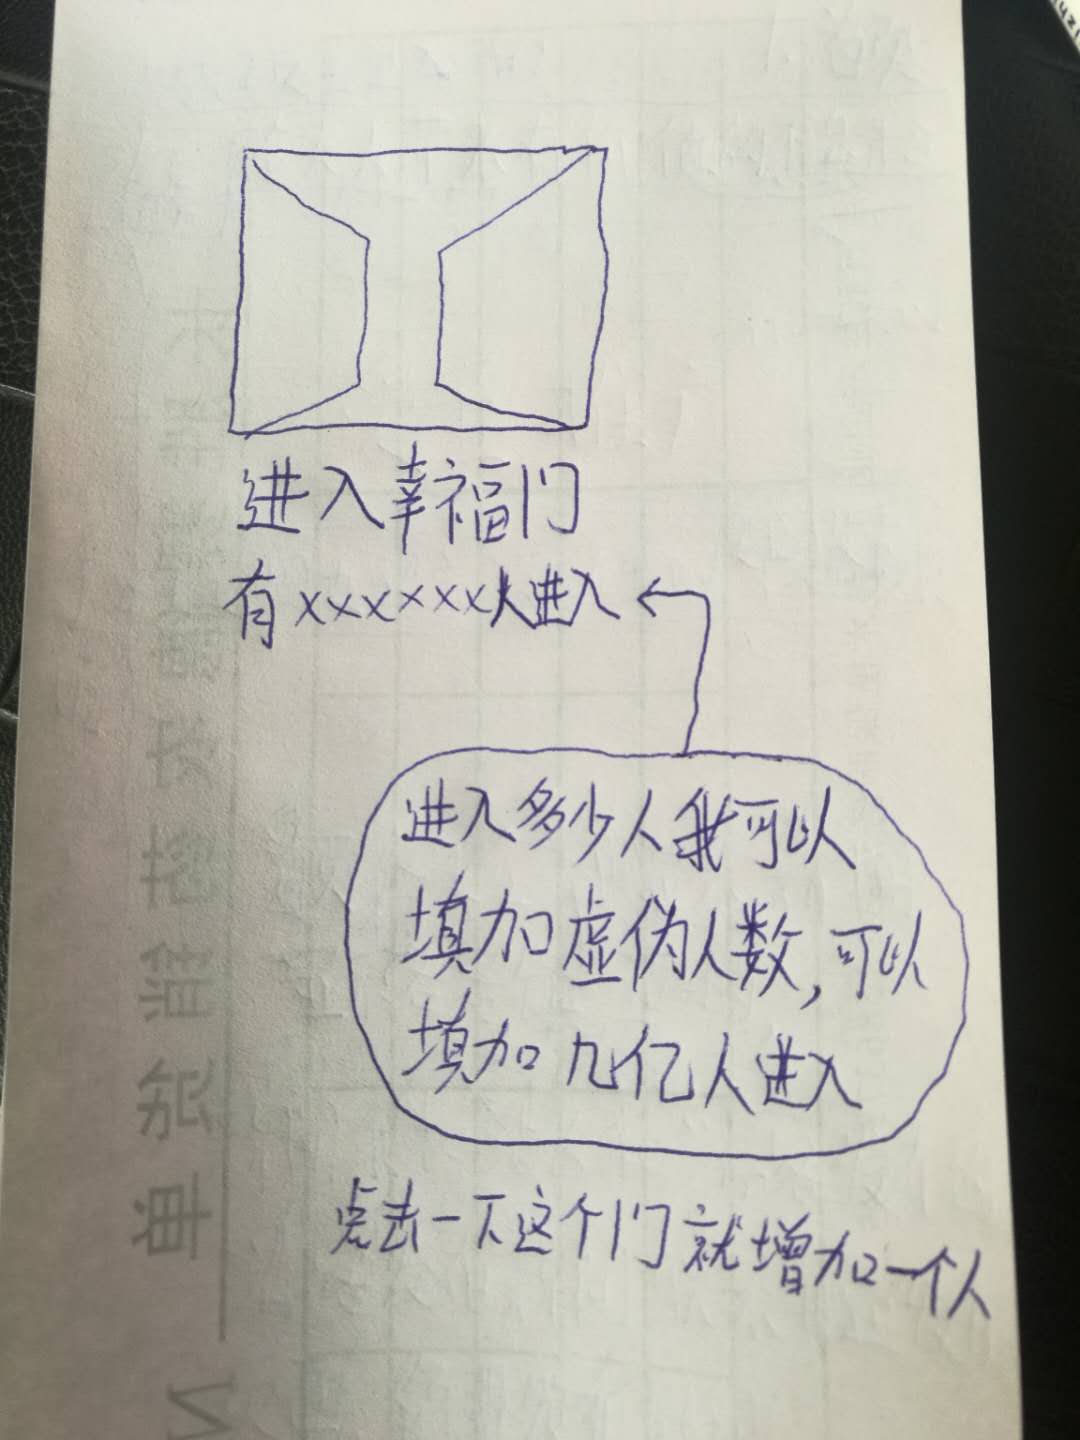 进入幸福门
有xxxxxx人进入
进入多少人我可以
填加虚伪人数,可以
填加几亿人进入
点击一下这个门就增加一个人